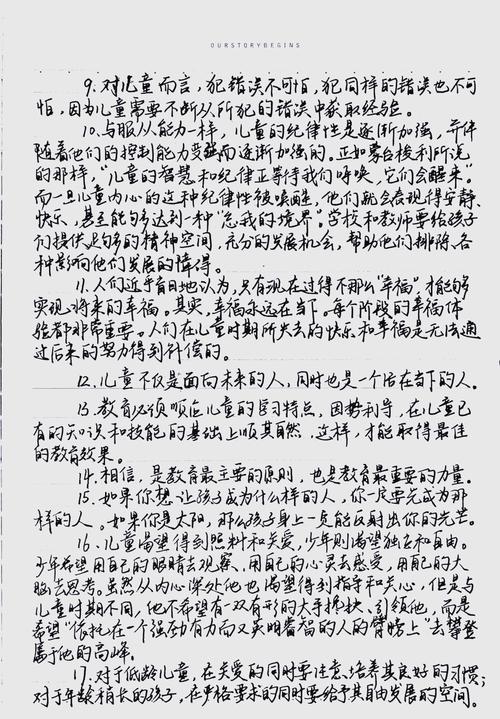 OURSTORYBEGINS
9.对儿童而言,犯错误不可怕,犯同样的错误也不可
怕,因为儿童需要不断从所犯的错误中获取经验。
10.与服从能力一样,儿童的纪律性是逐渐加强,并伴
随着他们的控制能力变强而逐渐加强的。正如蒙台梭利所说
的那样,“儿童的智慧和纪律正等待我们呼唤,它们会醒来”。
而一旦儿童内心的这种纪律性被唤醒,他们就会表现得安静、
快乐,甚至能够达到一种“忘我的境界”。学校和教师要给孩子
们提供足够的精神空间,充分的发展机会,帮助他们排除各
种影响他们发展的障碍。
11.人们近乎盲目地认为,只有现在过得不那么“幸福”,才能够
实现将来的幸福。其实,幸福永远在当下。每个阶段的幸福体
验都非常重要。人们在儿童时期所失去的快乐和幸福是无法通
过后来的努力得到补偿的。
12.儿童不仅是面向未来的人,同时也是一个活在当下的人。
13.教育必须顺应儿童的学习特点,因势利导,在儿童已
有的知识和技能的基础上顺其自然,这样,才能取得最佳
的教育效果。
14.相信,是教育最主要的原则,也是教育最重要的力量。
15.如果你想让孩子成为什么样的人,你一定要先成为那
样的人。如果你是太阳,那么孩子身上一定能反射出你的光芒。
16.儿童渴望得到照料和关爱,少年则渴望独立和自由。
少年希望用自己的眼睛去观察、用自己的心灵去感受,用自己的大
脑去思考。虽然从内心深处他也渴望得到指导和关心,但是与
儿童时期不同,他不希望有一双有形的大手搀扶、引领他,而是
希望“依托在一个强劲有力而又英明睿智的人的臂膀上”去攀登
属于他的高峰。
17.对于低龄儿童,在关爱的同时要注意培养其良好的习惯;
对于年龄稍长的孩子,在严格要求的同时要给予其自由发展的空间。